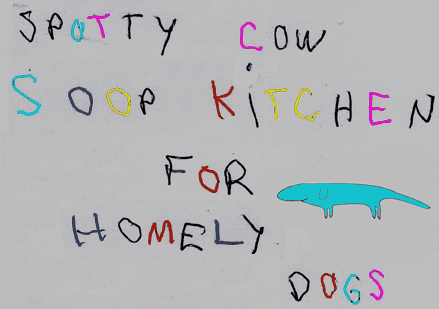 SPOTTY COW
SOOP KiTCHEN
FOR
HOMELY
DOGS